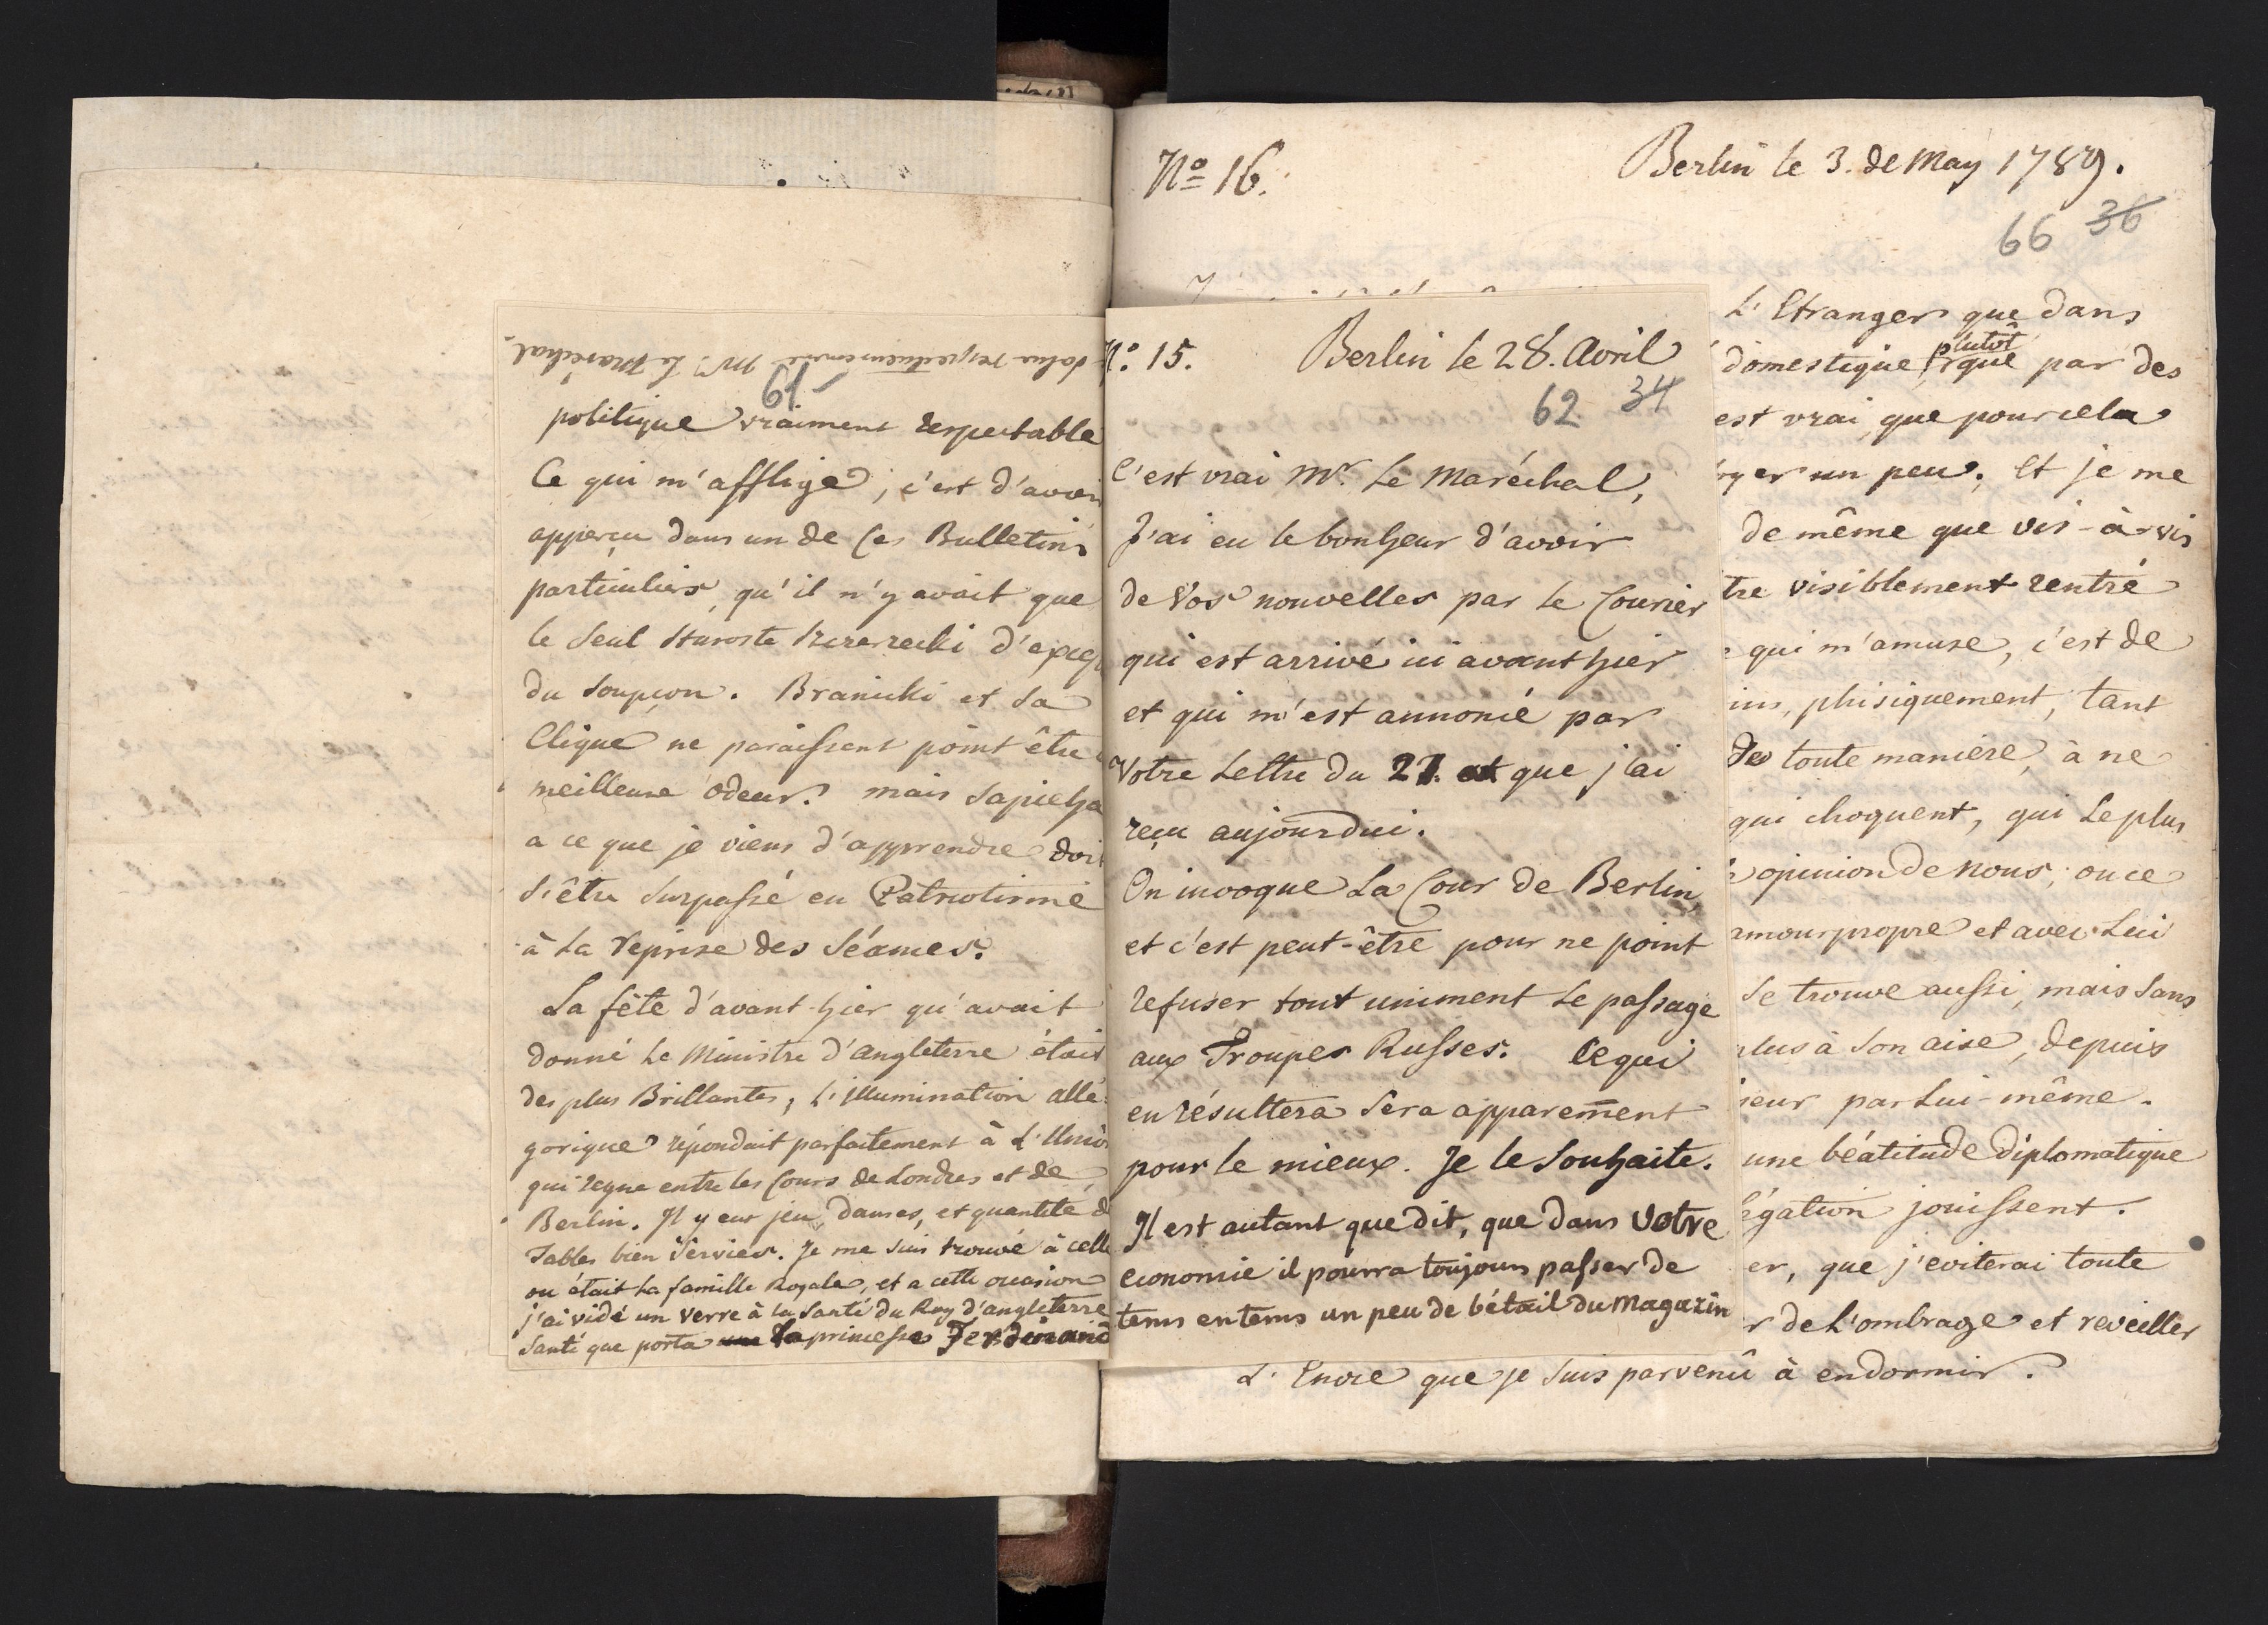 salue respectueusement Mr. Le Maréchal.
61
politique vraiment respectable
Ce qui m'afflige, c'est d'avoir
apperçu dans un de Ces Bulletins
particuliers, qu'il n'y avait que
le seul Staroste d'
du soupçon. Branicki et sa
Clique ne paraissent point être
meilleure odeur. mais Sapieha
a ce que je viens d'apprendre doit
s'être surpassé en Patriotisme
à la reprise des Séances.
La fête d'avant-hier qu'avait
donné le Ministre d'angleterre était
des plus Brillantes, L'illumination allé:
gorique répondait parfaitement à L'Union
qui regne entre les Cours de Londres et de
Berlin. Il y eut jeu, danses, et quantité d
Tables bien Servies. Je me suis trouvé à celle
ou était la famille Royale, et a cette occasion
j'ai vidé un verre à la Santé du Roy d'angleterre
Santé que porta la princesse Ferdinand
No. 15. Berlin le 28. Avril
62 34
C'est vrai Mr. Le Maréchal,
J'ai eu le bonheur d'avoir
de Vos nouvelles par le Courier
qui est arrivé ici avanthier
et qui m'est annoncé par
Votre Lettre du 21. et que j'ai
reçu aujourdui.
On invoque La Cour de Berlin,
et c'est peut-être pour ne point
refuser tout uniment Le passage
aux Troupes Russes. Ce qui
en résultera sera apparement
pour le mieux. Je le Souhaite.
Il est autant que dit, que dans Votre
economie il pourra toujours passer de
tems en tems un peu de bétail du Magazin
No 16. Berlin le 3. de May 1789.
66 36
L'Etranger que dans
domestique, plutôt que par des
est vrai, que pour cela
un peu. Et je me
de même que vis-à-vis
tre visiblement rentré
qui m'amuse, c'est de
ins, phisiquement, tant
de toute maniere, à ne
qui choquent, qui Le plus
opinion de nous; ou ce
amour propre et avec Lui
se trouve aussi, mais sans
plus à Son aise, depuis
ieur par Lui-même.
une béatitude diplomatique
égation jouissent.
er, que j'eviterai toute
r de L'ombrage et reveiller
L'Envie que je suis parvenû à endormir.